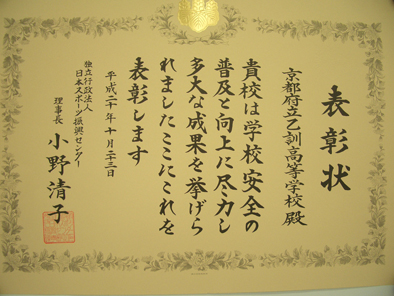 表彰状
京都府立乙訓高等学校殿
貴校は学校安全の
普及と向上に尽力し
多大な成果を挙げら
れましたここにこれを
表彰します
平成二十年十月二十三日
独立行政法人
日本スポーツ振興センター
理事長 小野清子